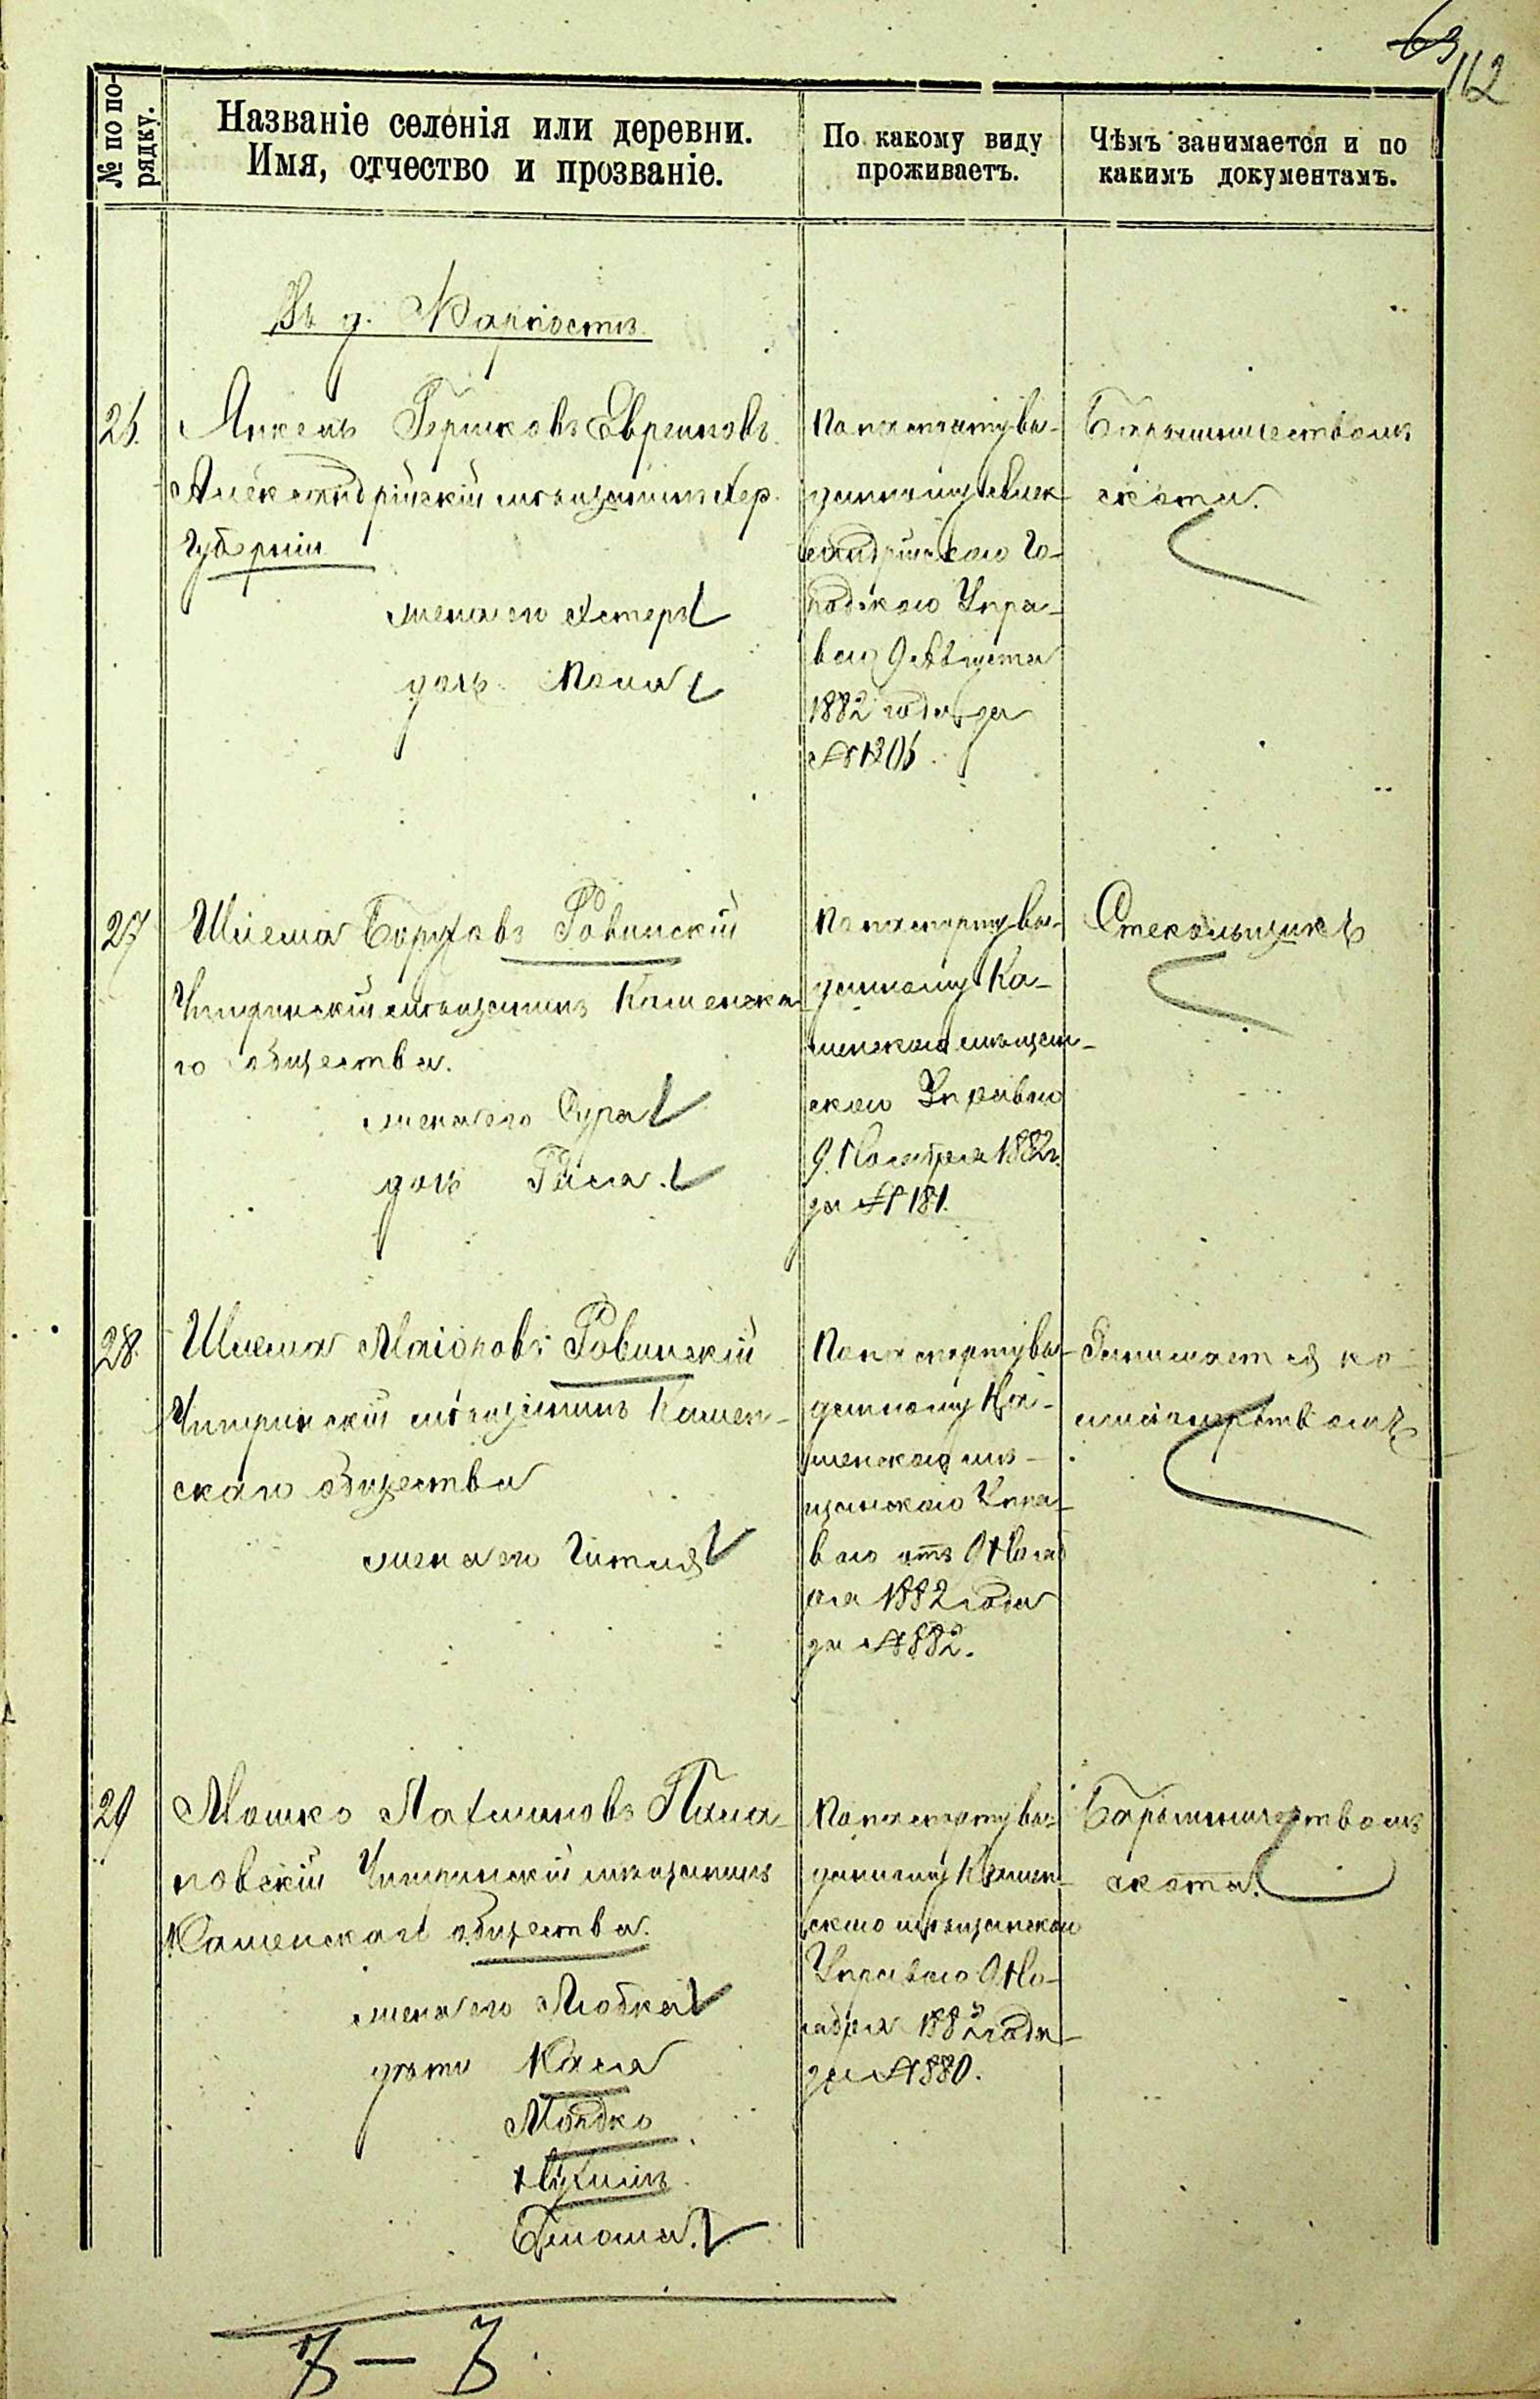 63
162
№ по по-
рядку.
Названіе селенія или деревни.
Имя, отчество и прозваніе.
По какому виду
проживаетъ.
Чѣмъ занимается и по
какимъ документамъ.
Въ д.
26.
Янкель Гершковъ Евреиновъ
Александрійскій мѣщанинъ Хер.
Губерніи
жена его Эстеръ
дочь
По паспорту вы-
данному Алек-
сандрійскою Го-
родскою Упра-
вою 9 Августа
1882 года за
№ 1206.
Барышничествомъ
скота.
27
Шлема Боруховъ Ровинскій
Чигринскій мѣщанинъ Каменска
го общества.
жена его Сура
дочь
По паспорту вы-
данному Ка-
менскою мѣщан-
скою Управою
9 Ноября 1882 г.
за № 181.
Стекольщикъ
28.
Шлема Маіоровъ Ровинскій
Чигринскій мѣщанинъ Камен-
скаго общества
жена его Гитля
По паспорту вы-
данному Ка-
менскою мѣ-
щанскою Упра-
вою отъ 9 Нояб
ря 1882 года
за № 882.
Занимается ко-
29
Мошко
новскій Чигринскій мѣщанинъ
Каменскаго общества.
жена его Любка
дѣти Хася
Мордко
Нухимъ
По паспорту вы-
данному Камен-
скою мѣщанскою
Управою 9 Но-
ября 1882 года
за № 880.
Барышничествомъ
скота.